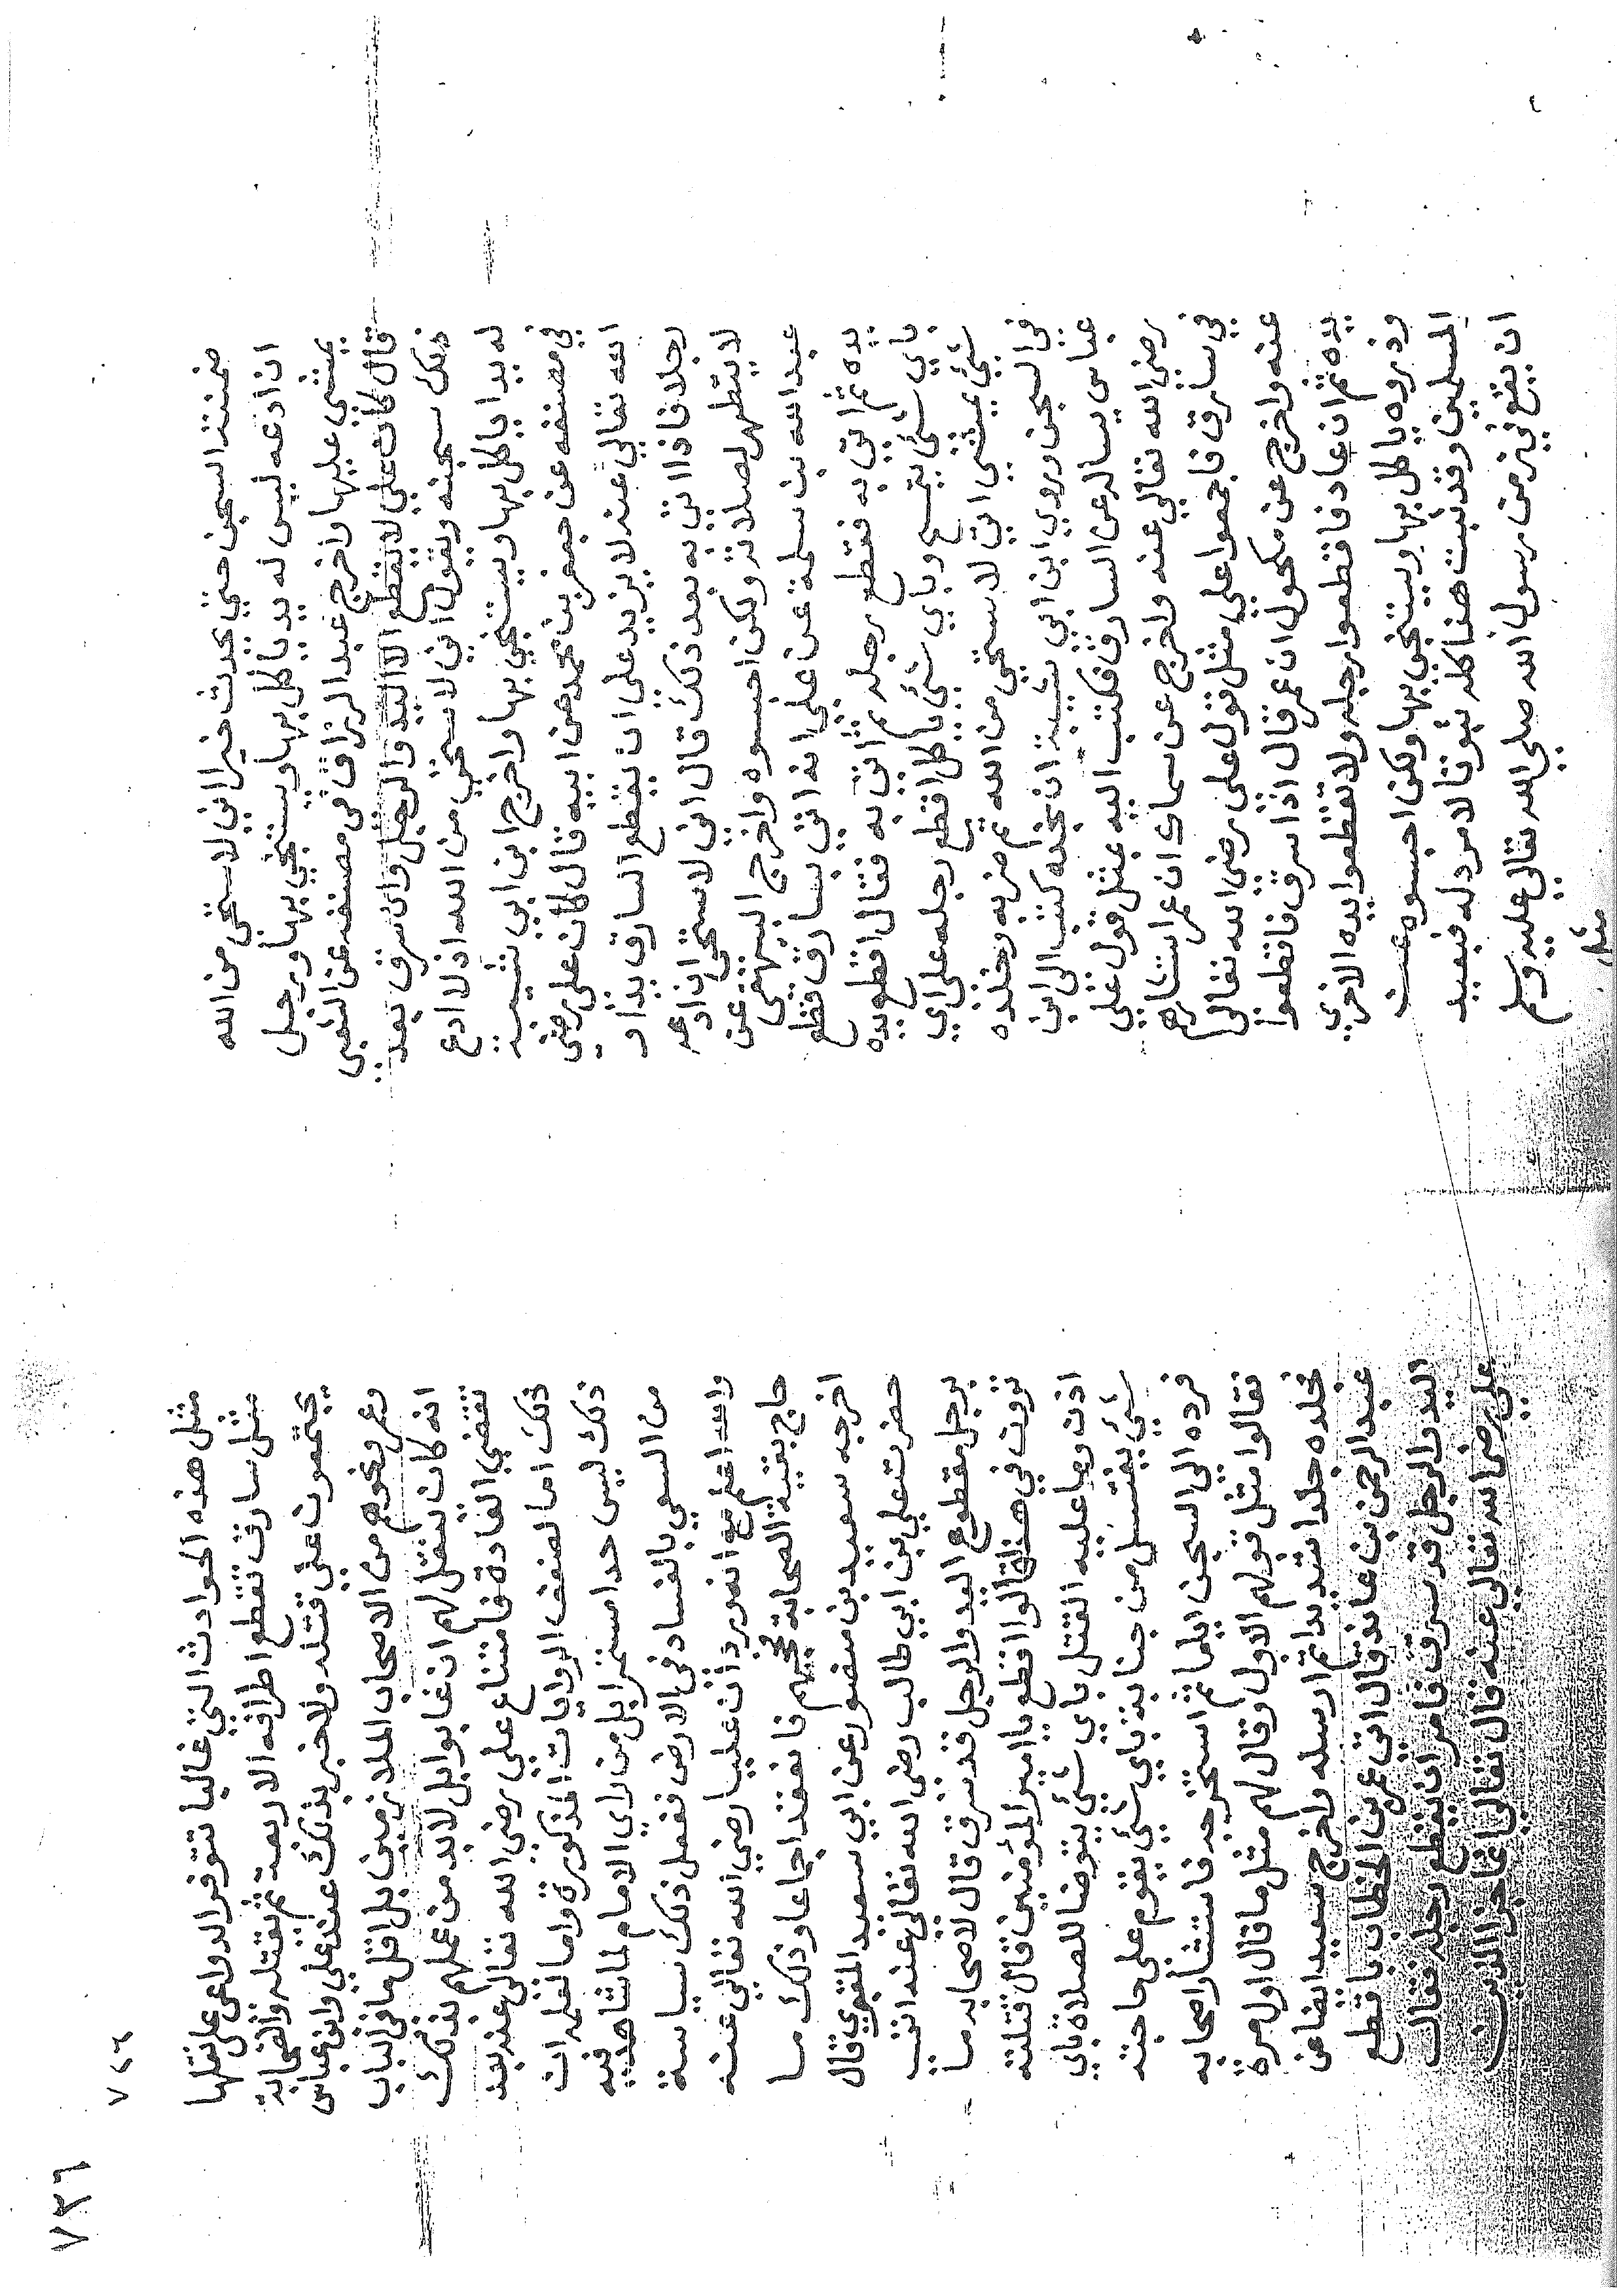 ضمنته السجن حتي يحدث خيرا اني لاستحي من الله
ان ادعه ليس له يد ياكل بها ويستنجي بها ورجل
يمشي عليها واخرج عبد الرزاق في مصنفه عن الشعبي
قال كان علي لا يقطع الا اليد والرجل وان سرق بعد
ذلك سجنه ويقول اني لاستحي من الله ان لا ادع
له يدا ياكل بها ويستنجي بها واخرج ابن ابي شيبة
في مصنفه عن جعفر بن محمد عن ابيه قال كان علي رضي
الله تعالي عنه لا يزيد علي ان يقطع السارق يدا و
رجلا فاذا اتي به بعد ذلك قال اني لاستحي ان ادعه
لا يتطهر لصلاته ولكن احبسوه واخرج البيهقي عن
عبد الله بن سلمة عن علي انه اتي بسارق فقطع
يده ثم اتي به فقطع رجله ثم اتي به فقال اقطع يده
باي شئ يتمسح وباي شئ ياكل اقطع رجله علي اي
شئ يمشي اني لاستحي من الله ثم ضربه وخلده
في السجن وروي ابن ابي شيبة ان نجدة كتب الي ابن
عباس يساله عن السارق فكتب اليه بمثل قول علي
رضي الله تعالي عنه واخرج عن سماك ان عمر استشارهم
في سارق فاجمعوا علي مثل قول علي رضي الله تعالي
عنه واخرج عن مكحول ان عمر قال اذا سرق فاقطعوا
يده ثم ان عاد فاقطعوا رجله ولا تقطعوا يده الاخري
وذروه ياكل بها ويستنجي بها ولكن احبسوه عن
المسلمين وقد ثبت هذا كله ثبوتا لا مرد له فبعيد
ان يقع في زمن رسول الله صلي الله تعالي عليه وسلم
مثل
٧٣٦
٧٢٦
مثل هذه الحوادث التي غالبا تتوفر الدواعي علي نقلها
مثل سارق تقطع اطرافه الاربعة ثم يقتله والصحابة
يجتمعون علي قتله ولا خبر بذلك عند علي وابن عباس
وعمر ونحوهم من الاصحاب الملازمين بل اقل ما في الباب
انه كان ينقل لهم ان غابوا بل لا بد من علمهم بذلك
تقتضي العادة فامتناع علي رضي الله تعالي عنه بعد
ذلك اما لضعف الروايات المذكورة واما لعلمه ان
ذلك ليس حدا مستمرا بل من راي الامام لما شاهد فيه
من السعي بالفساد في الارض ففعل ذلك سياسة
والله اعلم مع انه ورد ان عليا رضي الله تعالي عنه
حاج بقية الصحابة فحجهم فانعقد اجماعا وذلك ما
اخرجه سعيد بن منصور عن ابي سعيد المقبري قال
حضرت علي بن ابي طالب رضي الله تعالي عنه اتي
برجل مقطوع اليد والرجل قد سرق قال لاصحابه ما
ترون في هذا قالوا اقطع يا امير المؤمنين قال قتلته
اذن وما عليه القتل باي شئ يتوضا للصلاة باي
شئ يغتسل من جنابته باي شئ يقوم علي حاجته
فرده الي السجن اياما ثم استخرجه فاستشار اصحابه
فقالوا مثل قولهم الاول وقال لهم مثل ما قال اول مرة
فجلده جلدا شديدا ثم ارسله واخرج سعيد ايضا عن
عبد الرحمن بن عائذ قال اتي عمر بن الخطاب باقطع
اليد والرجل قد سرق فامر ان يقطع رجله فقال
علي رضي الله تعالي عنه قال تعالي انما جزاء الذين